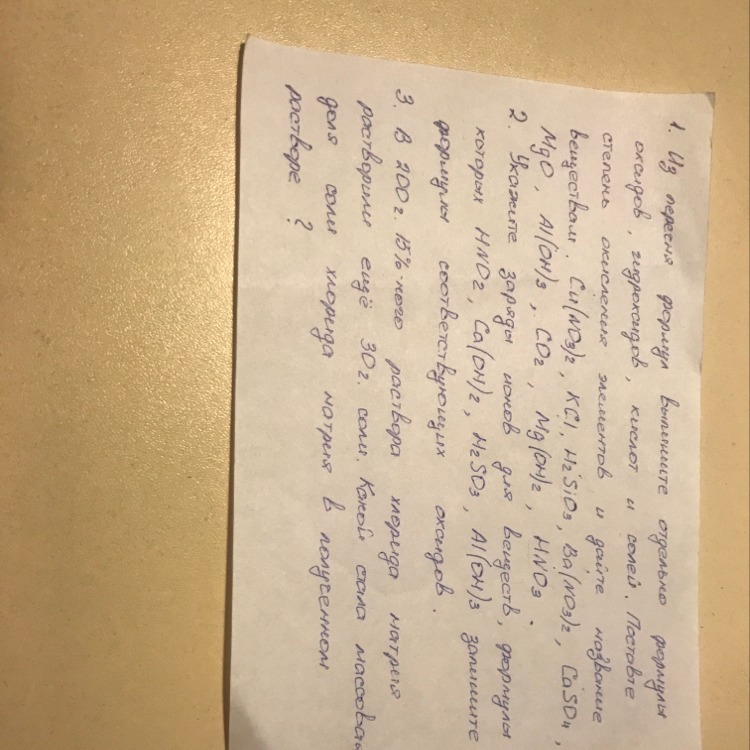 1. Из пересня формул выпишите отдельно формулы
оксидов, гидроксидов, кислот и солей. Поставте
степень окисления элементов и дайте название
веществам. Cu(NO3)2, KCl, H2SiO3, Ba(NO3)2, CaSO4,
MgO, Al(OH)3, CO2, Mg(OH)2, HNO3.
2. Укажите заряды ионов для веществ, формулы
которых HNO2, Ca(OH)2, H2SO3, Al(OH)3 запишите
формулы соответствующих оксидов.
3. В 200 г. 15%-ного раствора хлорида натрия
растворили ещё 30 г. соли. Какой стала массовая
доля соли хлорида натрия в полученном
растворе?